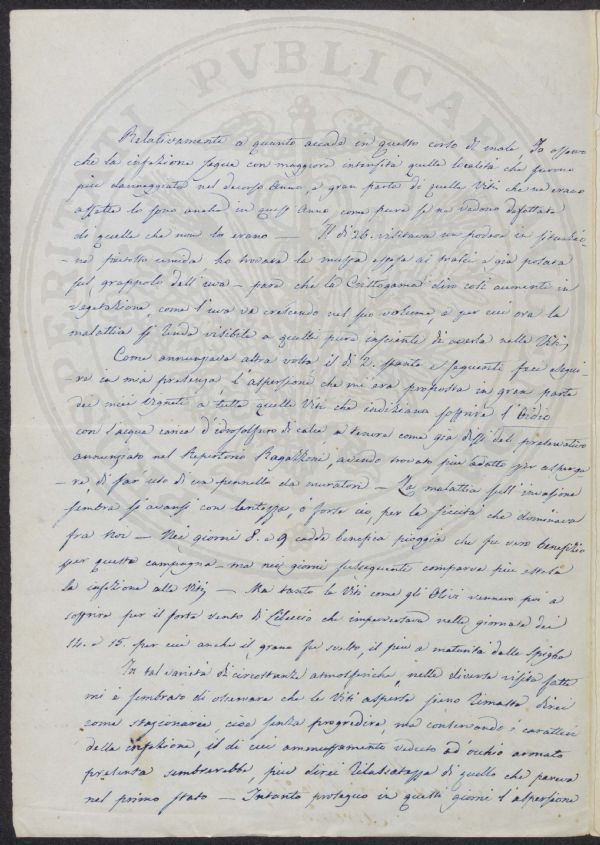 Relativamente a quanto accade in questo corso di male, Io osservo
che la infezione segue con maggiore intensità quelle località che furono
più danneggiate nel decorso Anno, e gran parte di quelle Viti che ne erano
affette lo sono anche in quest'Anno come pure se ne vedono difettate
di quelle che non lo erano — Il dì 26. visitava un podere in situazio-
-ne piuttosto umida ho trovato la muffa estesa ai tralci e già portata
sul grappolo dell'uva – pare che la Crittogama dirò così aumenti in
vegetazione, come l'uva va crescendo nel suo volume, e per cui ora la
malattia si renda visibile a quelli pure insciente di averla nelle Viti,
Come annunziava altra volta il dì 2. stante e seguenti feci esegui-
-re in mia presenza, l'aspersione che mi era proposta in gran parte
dei miei Vigneti a tutte quelle Viti che indiziava soffrire l'Oidio
con l'acqua carica d'idrosolfuro di calce, a tenore come già dissi del preservativo
annunziato nel Repertorio Ragazzoni, avendo trovato più adatto per asperge-
-re, di far uso di un pennello da muratori — La malattia sull'invasione
sembra si avanzi con lentezza, o forse ciò, per la siccità che dominava
fra Noi — Nei giorni 8. e 9 cadde benefica pioggia che fu vero benefizio
per questa campagna – ma nei giorni susseguenti comparve più estesa
la infezione alle Viti — Ma tanto le Viti come gli Olivi vennero poi a
soffrire per il forte vento di Libeccio che imperversava nelle giornate dei
14. e 15. per cui anche il grano fu svelto, il più a maturità dalle Spighe
In tal varietà di circostanze atmosferiche, nelle diverse visite fatte
mi è sembrato di osservare che le Viti asperse sieno rimaste, direi
come stazionarie, cioè senza progredire, ma conservando i caratteri
della infezione, il di cui ammassamento veduto ad occhio armato
presenta sembrerebbe, più direi rilasciatezza di quello che pareva
nel primo stato — Intanto proseguo in questi giorni l'aspersione